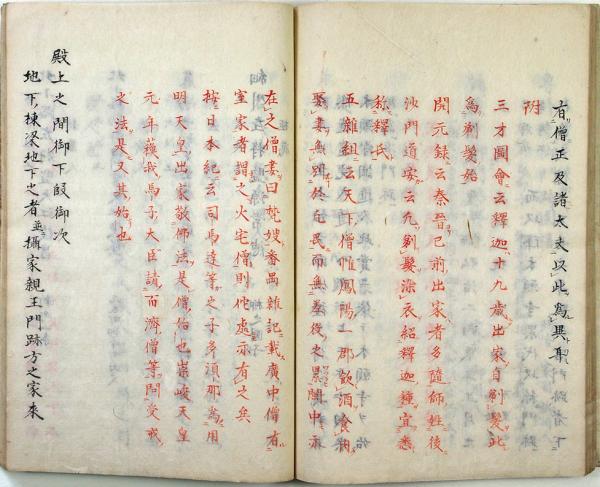 有僧正及諸太夫以此為異耳
附
三才圖會云釋迦十九歳出家自剃髮此
為剃髮始
開元録云秦晉已前出家者多隨師姓後
沙門道安云凡剃髮染衣紹釋迦種宜悉
称釋氏
五雜組云天下僧惟鳳陽一郡飲酒食肉
娶妻無別於凡民而無差役之累閩中亦
在之僧妻曰梵嫂番禺雜記載廣中僧有
室家者謂之火宅僧則他處亦有之矣
按日本紀云司馬達等之子多須那為用
明天皇出家敬佛法是僧俗也崇峻天皇
元年蘓我馬子大臣請百濟僧等問受戒
之法是又其始也
殿上之間御下段御次
地下棟梁地下之者並攝家親王門跡方之家来